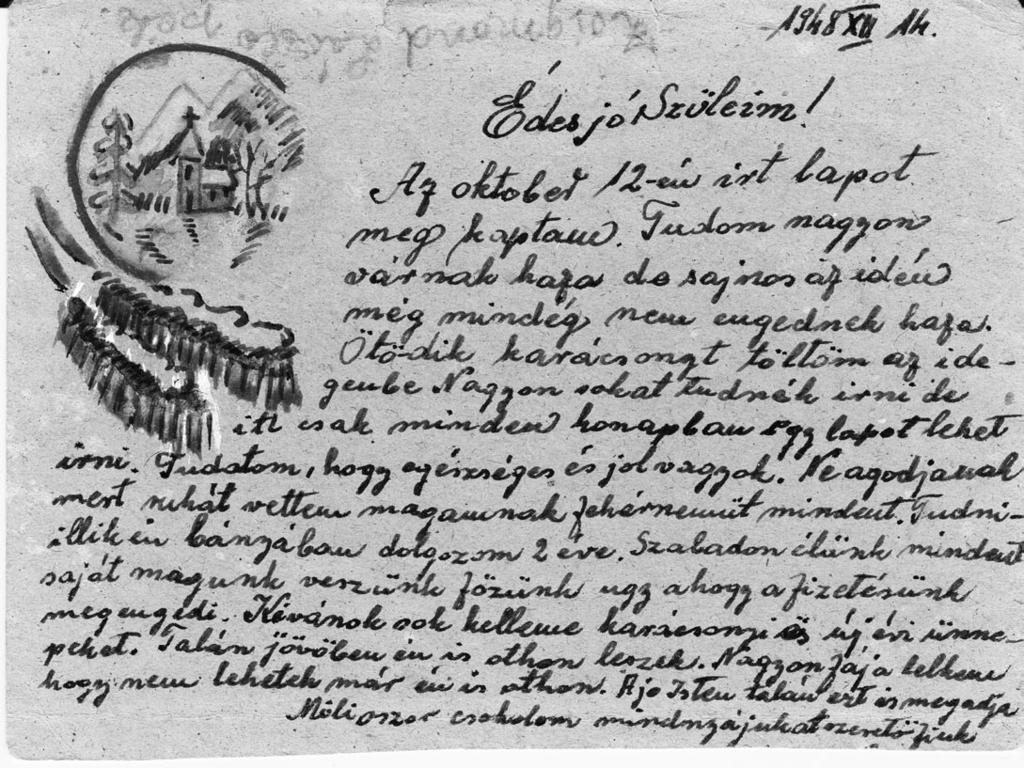 1948 XII 14.
Édes jó Szüleim!
Az oktober 12-én irt lapot
meg kaptam. Tudom nagyon
várnak haza de sajnos az idén
még mindég nem engednek haza.
Ötödik karácsonyt töltöm az ide-
genbe Nagyon sokat tudnék irni de
itt csak minden honapban egy lapot lehet
irni. Tudatom, hogy egészséges és jol vagyok. Ne agodjanak
mert ruhát vettem magamnak fehérnemüt mindent. Tudni-
illik én bányában dolgozom 2 éve. Szabadon élünk mindent
saját magunk veszünk főzünk ugy ahogy a fizetésünk
megengedi. Kévánok sok kelleme karácsonyi és új évi ünne-
peket. Talán jövőben én is othon leszek. Nagyon fája lelkem
hogy nem lehetek már én is othon. A jo Isten talán ezt is megadja
Milioszor csokolom mindnyájukat szerető fiuk